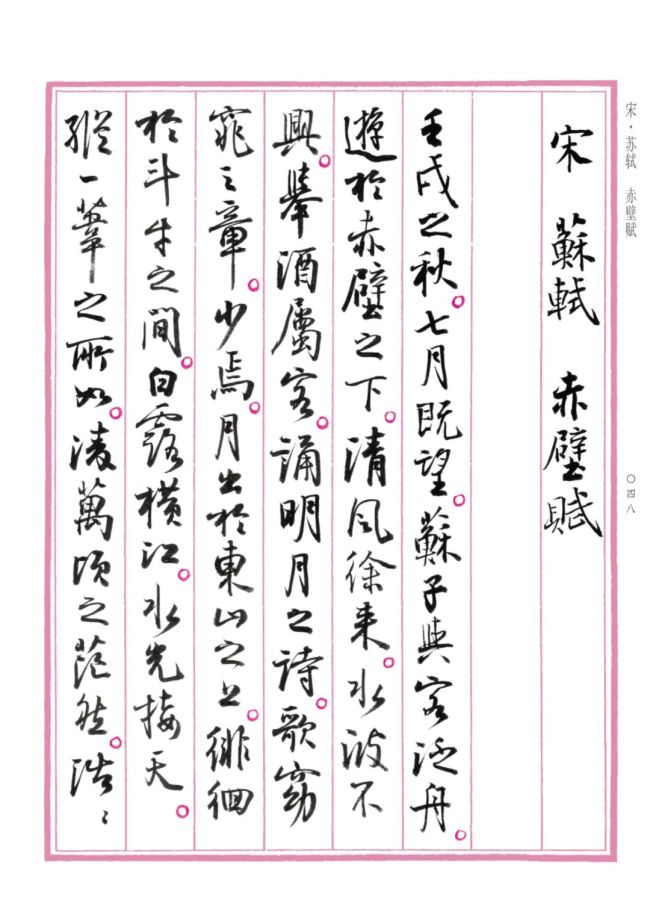 宋·苏轼 赤壁赋
〇四八
宋 蘇軾 赤壁賦
壬戌之秋。七月既望。蘇子與客泛舟。
遊於赤壁之下。清風徐来。水波不
興。舉酒屬客。誦明月之詩。歌窈
窕之章。少焉。月出於東山之上。徘徊
於斗牛之間。白露橫江。水光接天。
縱一葦之所如。淩萬頃之茫然。浩〻